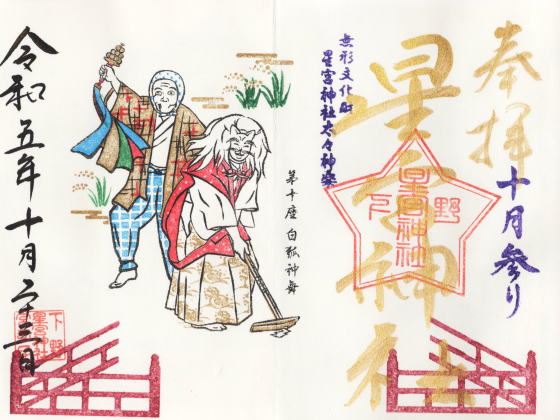 奉拝
十月参り
星宮神社
下野
星宮神社
無形文化財
星宮神社太々神楽
第十座 白狐神舞
令和五年十月二十三日
下野
星宮神社